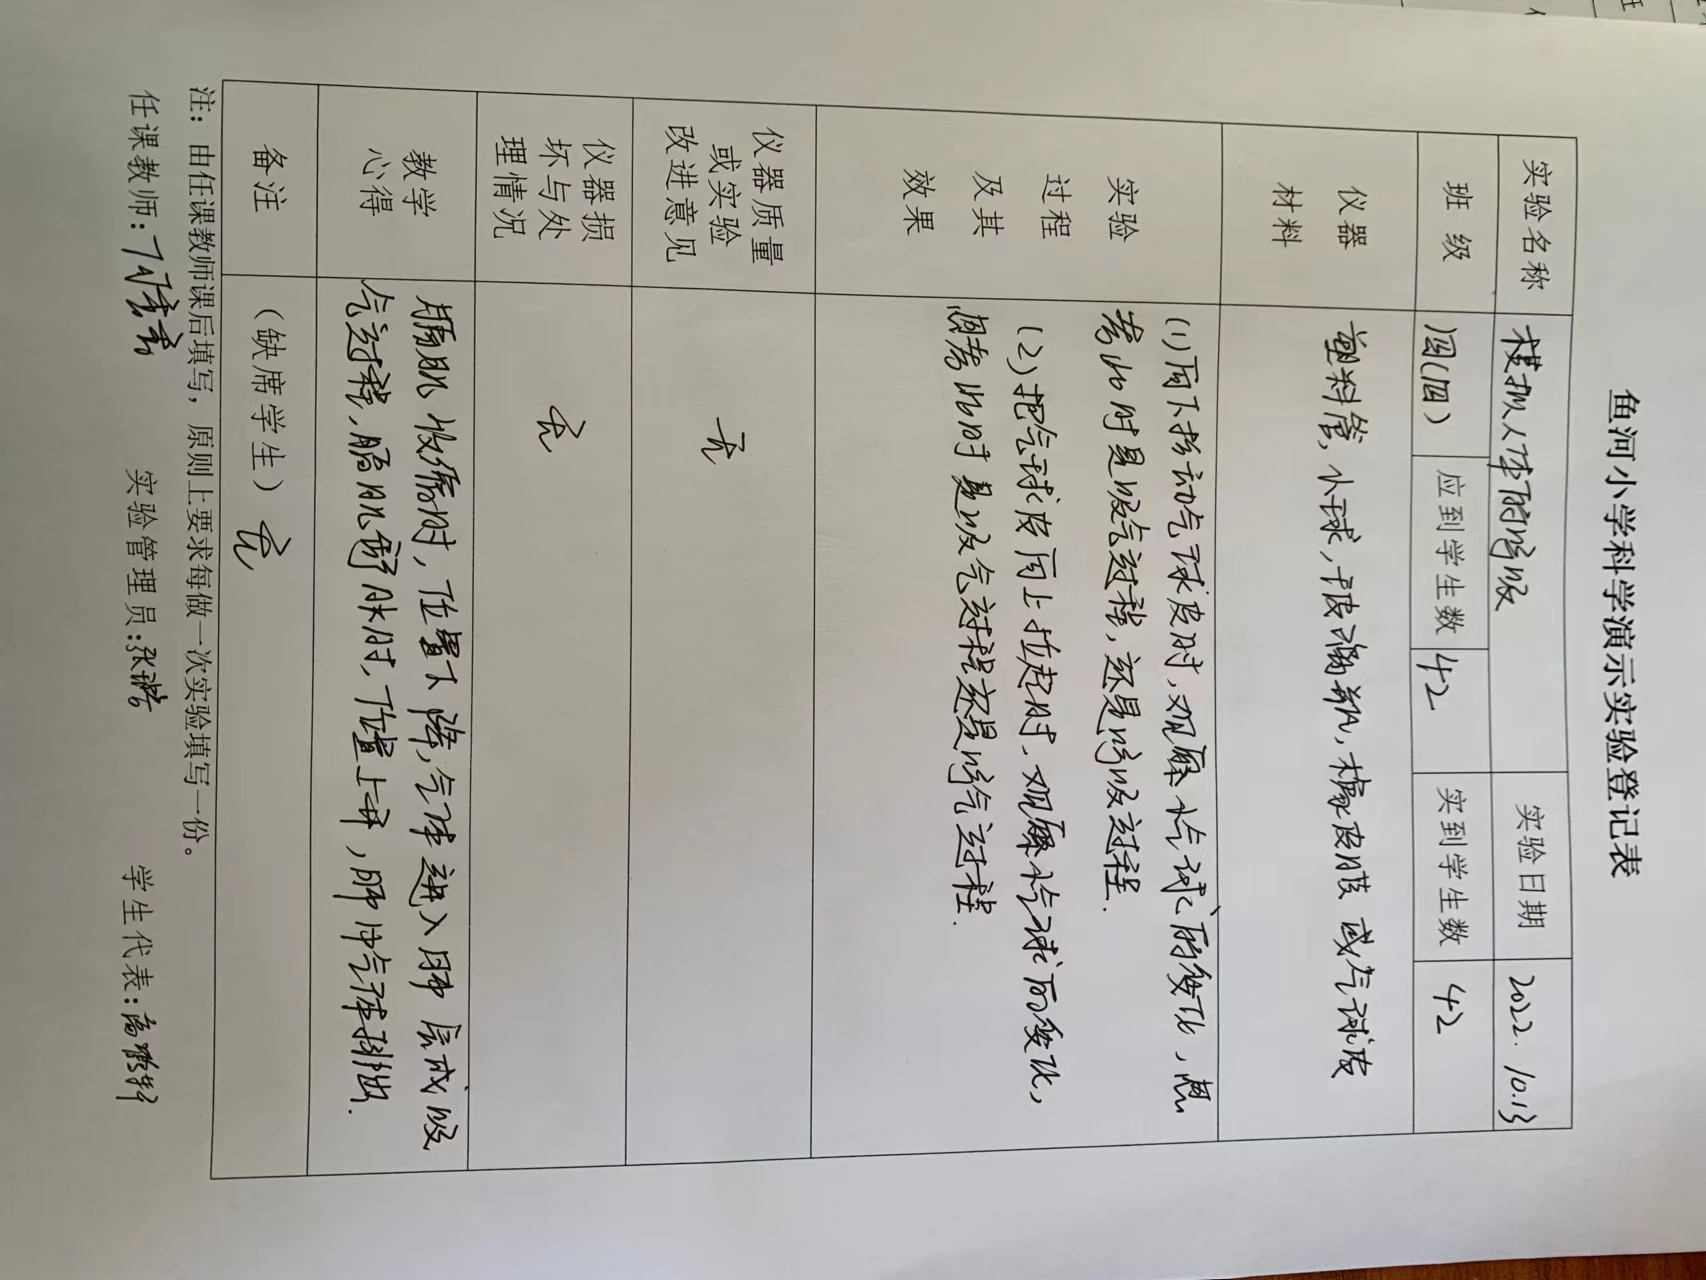 鱼河小学科学演示实验登记表
实验名称 模拟人体的呼吸 实验日期 2022.10.13
班 级 四(四) 应到学生数 42 实到学生数 42
仪器
材料
塑料管,小球,玻璃瓶,橡皮膜或气球皮
实验
过程
及其
效果
(1)向下拉动气球皮时,观察小气球的变化,思
考此时是吸气过程,还是呼吸过程.
(2)把气球皮向上拉起时,观察小气球的变化,
思考此时是吸气过程还是呼气过程.
仪器质量
或实验
改进意见
无
仪器损
坏与处
理情况
无
教学
心得
膈肌收缩时,位置下降,气体进入肺完成吸
气过程,膈肌舒张时,位置上升,肺中气体排出.
备注 (缺席学生) 无
注:由任课教师课后填写,原则上要求每做一次实验填写一份。
任课教师: 实验管理员:张 学生代表:高